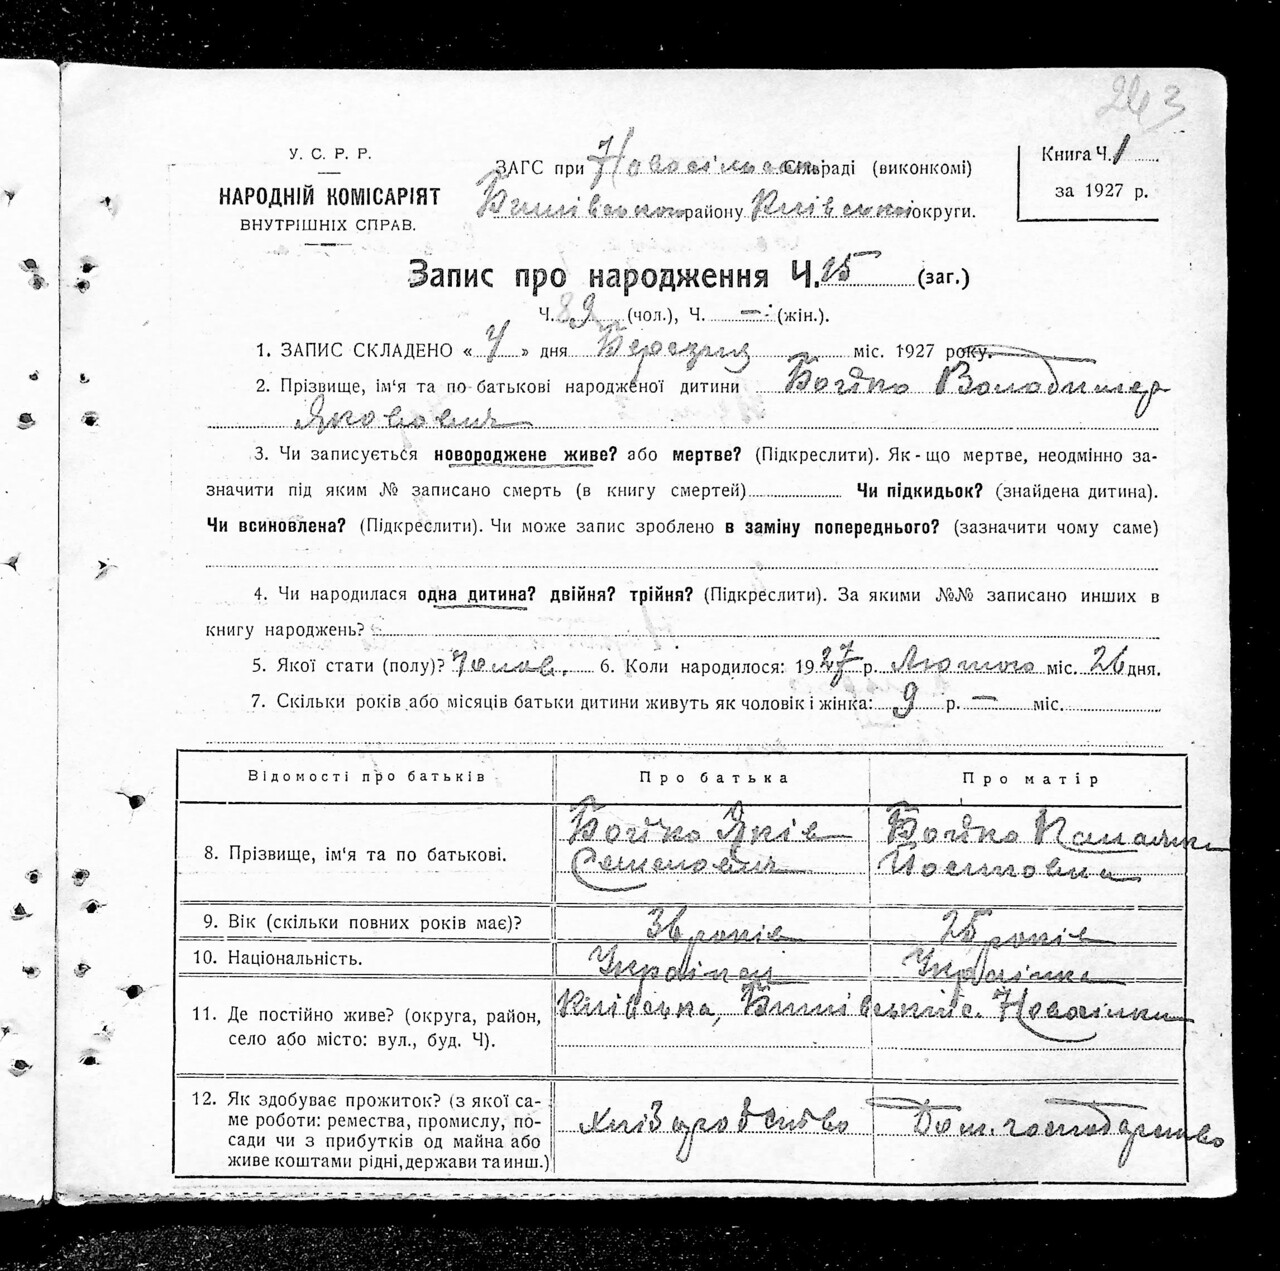 243
У. С. Р. Р.
НАРОДНІЙ КОМІСАРІЯТ
ВНУТРІШНІХ СПРАВ.
ЗАГС при Новосільській сільраді (виконкомі)
Бишівському району Київської округи.
Книга Ч. 1
за 1927 р.
Запис про народження Ч. 15 (заг.)
Ч. 8 (чол.), Ч. — (жін.).
1. ЗАПИС СКЛАДЕНО « 4 » дня Березня міс. 1927 року.
2. Прізвище, ім'я та по батькові народженої дитини Бойко Володимер
Яковович
3. Чи записується новороджене живе? або мертве? (Підкреслити). Як-що мертве, неодмінно за-
значити під яким № записано смерть (в книгу смертей) Чи підкидьок? (знайдена дитина).
Чи всиновлена? (Підкреслити). Чи може запис зроблено в заміну попереднього? (зазначити чому саме)
4. Чи народилася одна дитина? двійня? трійня? (Підкреслити). За якими №№ записано инших в
книгу народжень?
5. Якої стати (полу)? Чолов. 6. Коли народилося: 1927 р. Лютого міс. 26 дня.
7. Скільки років або місяців батьки дитини живуть як чоловік і жінка: 9 р. — міс.
Відомості про батьків Про батька Про матір
8. Прізвище, ім'я та по батькові. Бойко Яків Семенович Бойко Йосиповна
9. Вік (скільки повних років має)? 36 років 25 років
10. Національність. Українец Українка
11. Де постійно живе? (округа, район, Київська, Бишівський с. Новосілки
село або місто: вул., буд. Ч).
12. Як здобуває прожиток? (з якої са-
ме роботи: ремества, промислу, по- Хліборобство Дом. господарство
сади чи з прибутків од майна або
живе коштами рідні, держави та инш.)